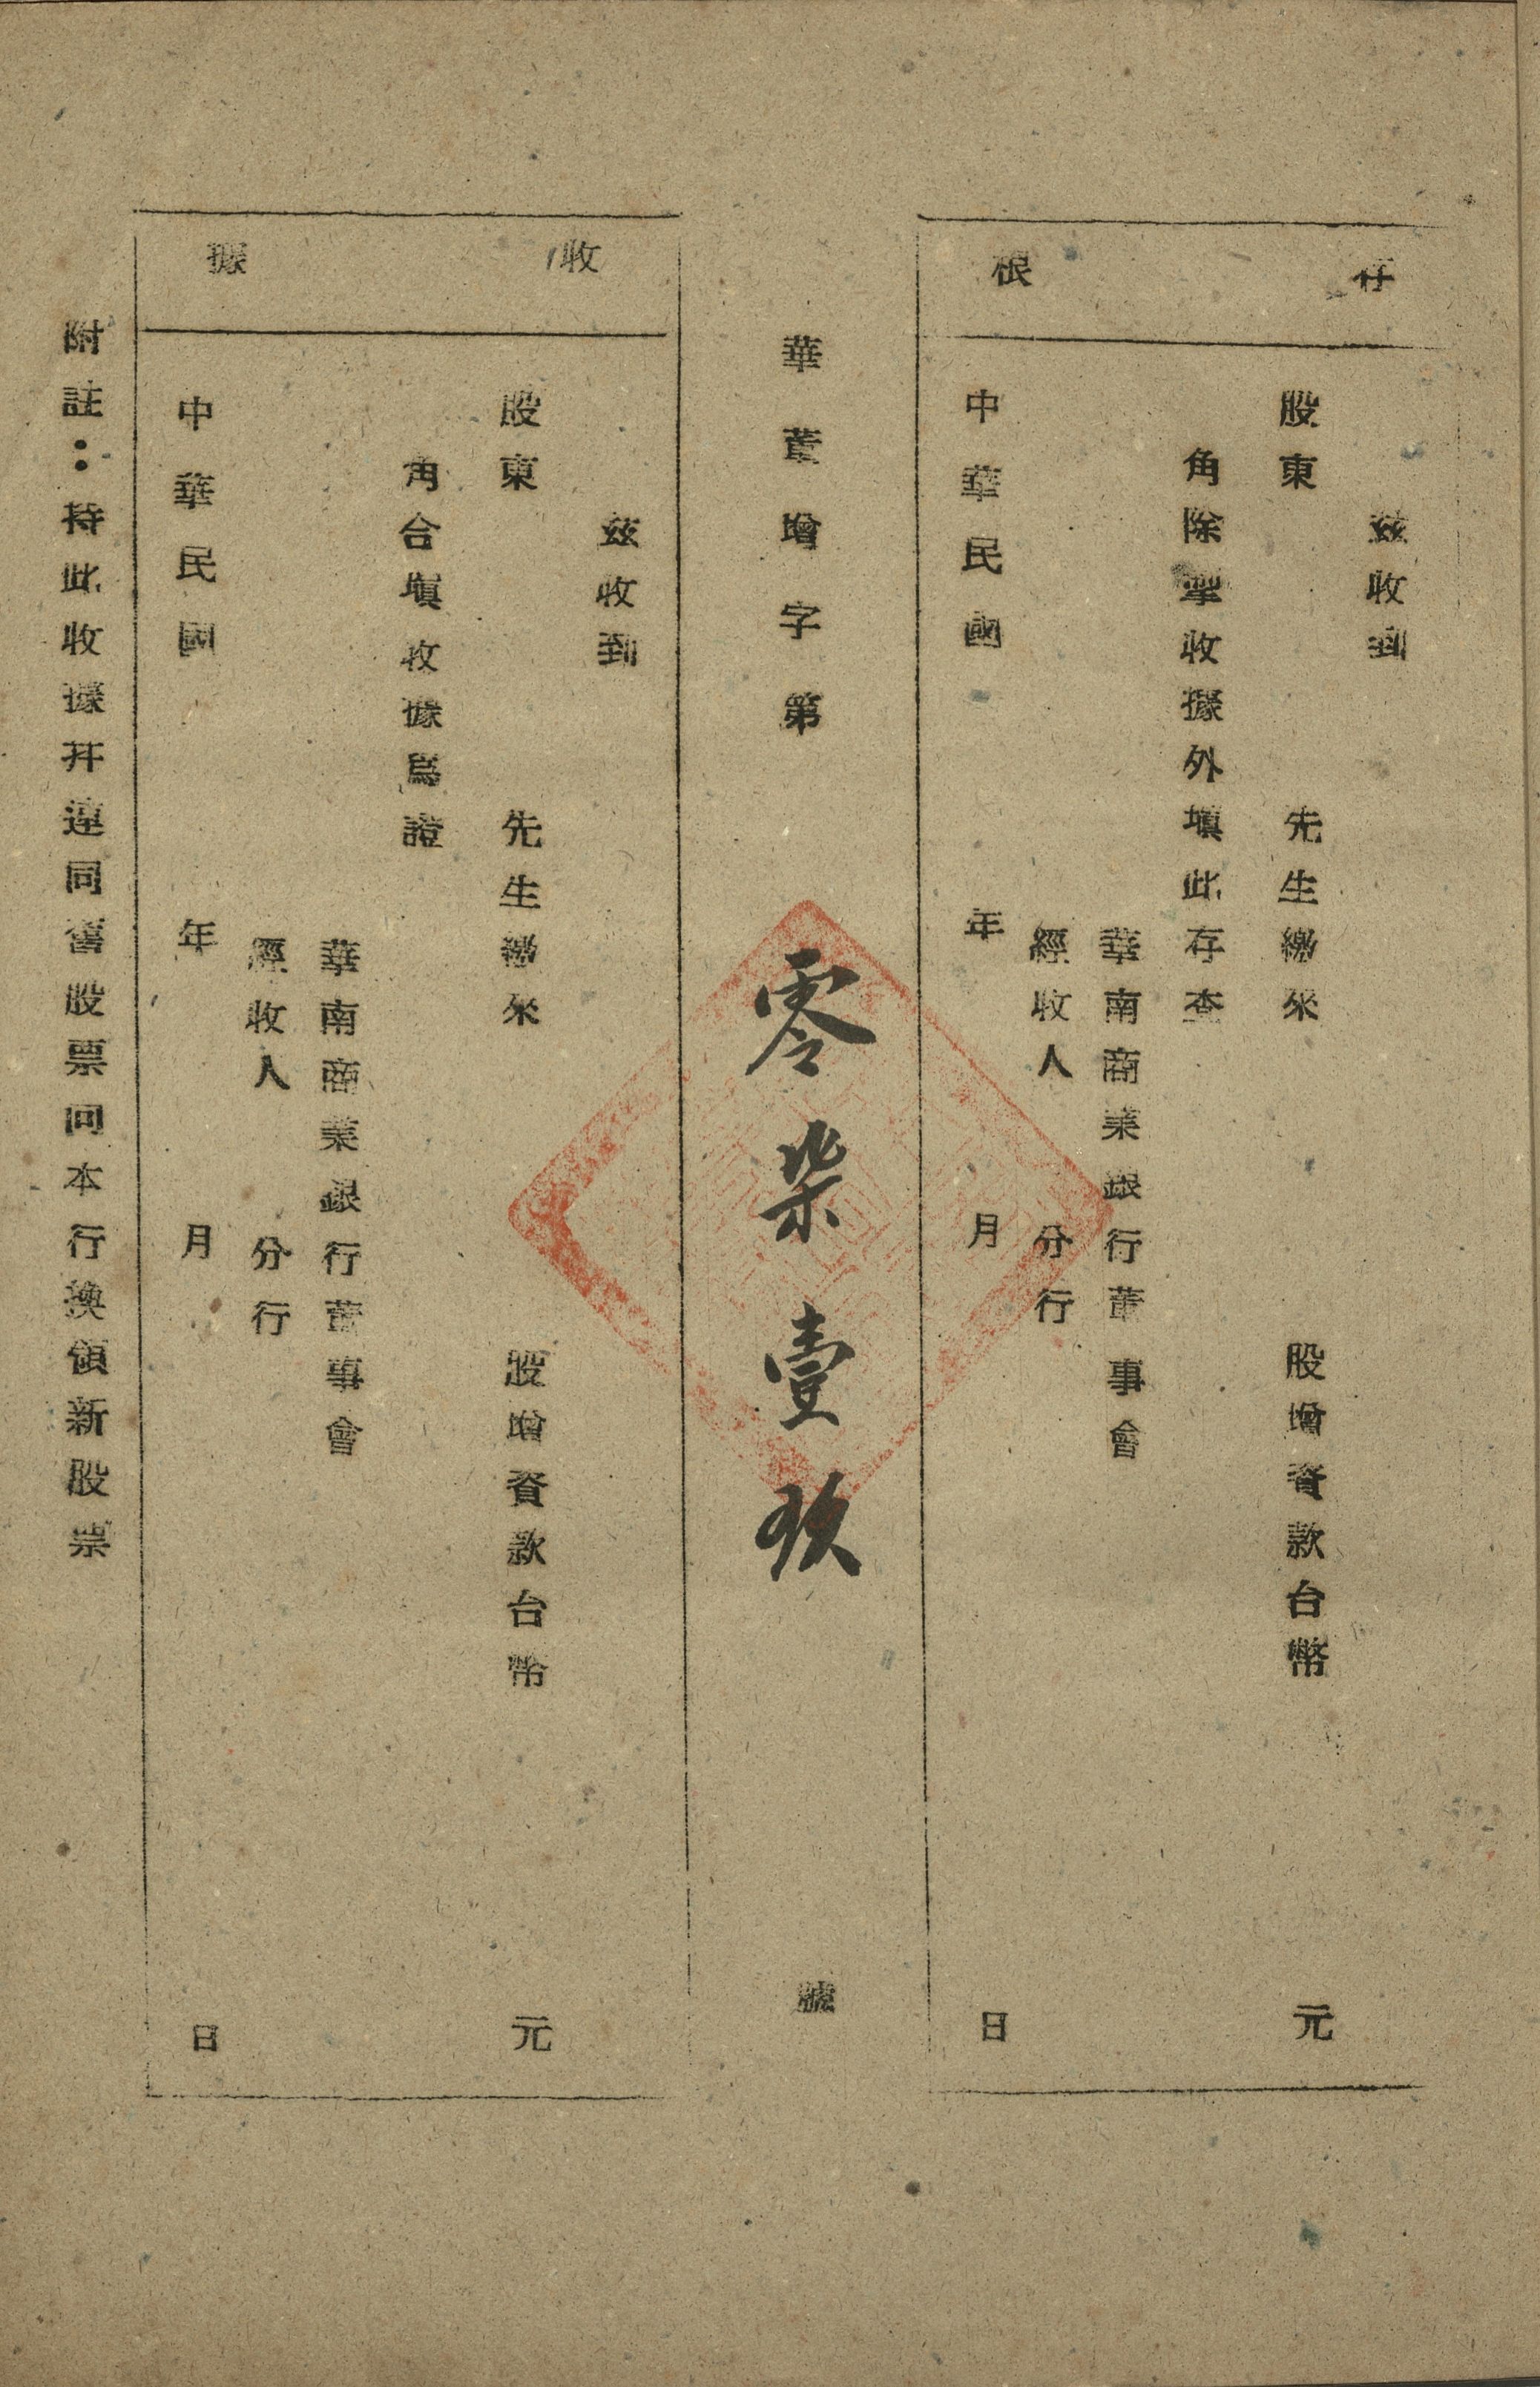 存根
茲收到
股東　先生繳來　股增資款台幣　元
角除掣收據外塡此存查
華南商業銀行董事會
經收人　分行
中華民國　年　月　日
華董增字第零柒壹玖號
收據
茲收到
股東　先生繳來　股增資款台幣　元
角合塡收據爲證
華南商業銀行董事會
經收人　分行
中華民國　年　月　日
附註：持此收據幷連同舊股票向本行換領新股票